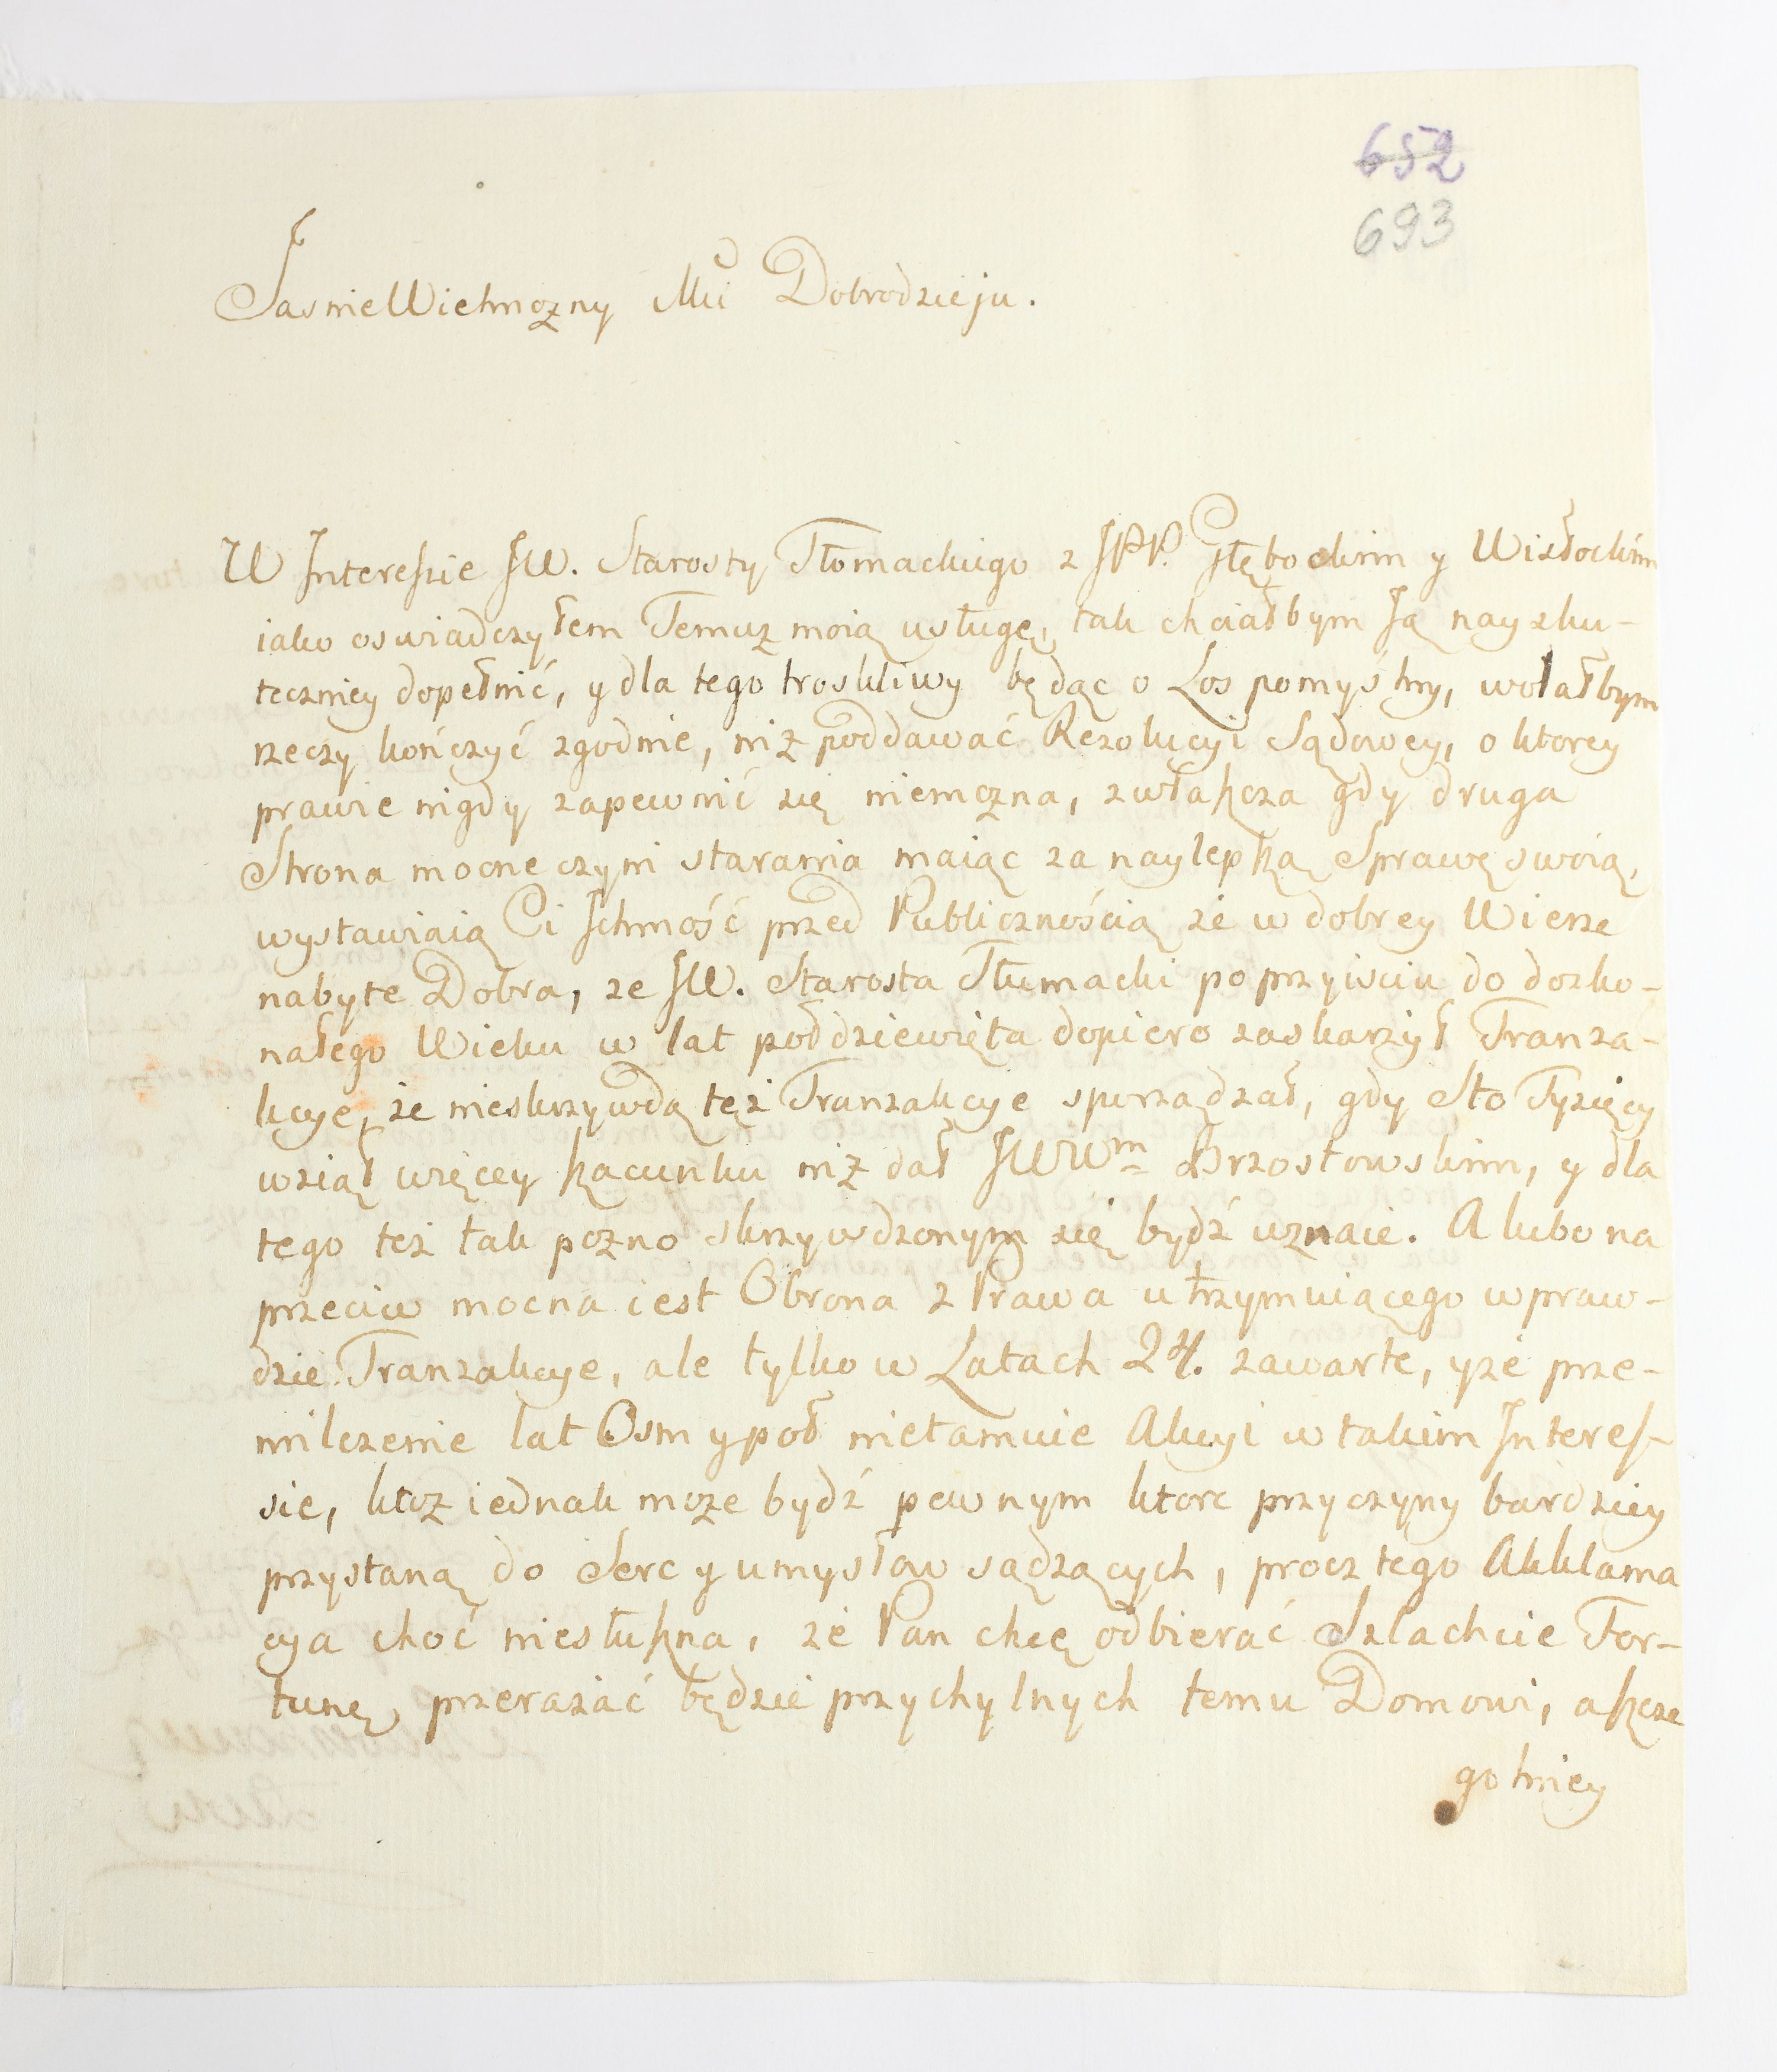 652
693
JasnieWielmożny Mci Dobrodzieju.
W Interessie JW. Starosty Tłomackiego z JPP. Głębockim y Wisłockim
iako oswiadczyłem Temuż moią usługę, tak chciałbym Ją naysku-
teczniey dopełnić, y dla tego troskliwy będąc o Los pomyślny, wolałbym
rzeczy kończyć zgodnie, niż poddawać Rezolucyi Sądowey, o ktorey
prawie nigdy zapewnić się niemożna, zwłaszcza gdy druga
Strona mocne czyni starania maiąc za naylepszą Sprawę swoią,
wystawiaią Ci Ichmość przed Publicznością że w dobrey Wierze
nabyte Dobra, że JW. Starosta Tłumacki po przyiściu do dosko-
nałego Wieku w lat połdziewięta dopiero zaskarżył Tranza-
kcye, że nieskrzywdą też Tranzakcye sporządzał, gdy Sto Tysięcy
wziął więcey szacunku niż dał JWWm Brzostowskim, y dla
tego też tak pozno skrzywdzonym się bydź uznaie. A lubo na
przeciw mocna iest Obrona z Prawa utrzymuiącego wpraw-
dzie Tranzakcye, ale tylko w Latach 24. zawarte, yże prze-
milczenie lat Osm ypoł nietamuie Akcyi w takim Interes-
sie, ktoż iednak może bydź pewnym ktore przyczyny bardziey
przystaną do Serc y umysłow sądzących, procz tego Akklama
cya choć niesłuszna, że Pan chcę odbierać Szlachcie For-
tunę, przerażać będzie przychylnych temu Domowi, aszcze
golniey